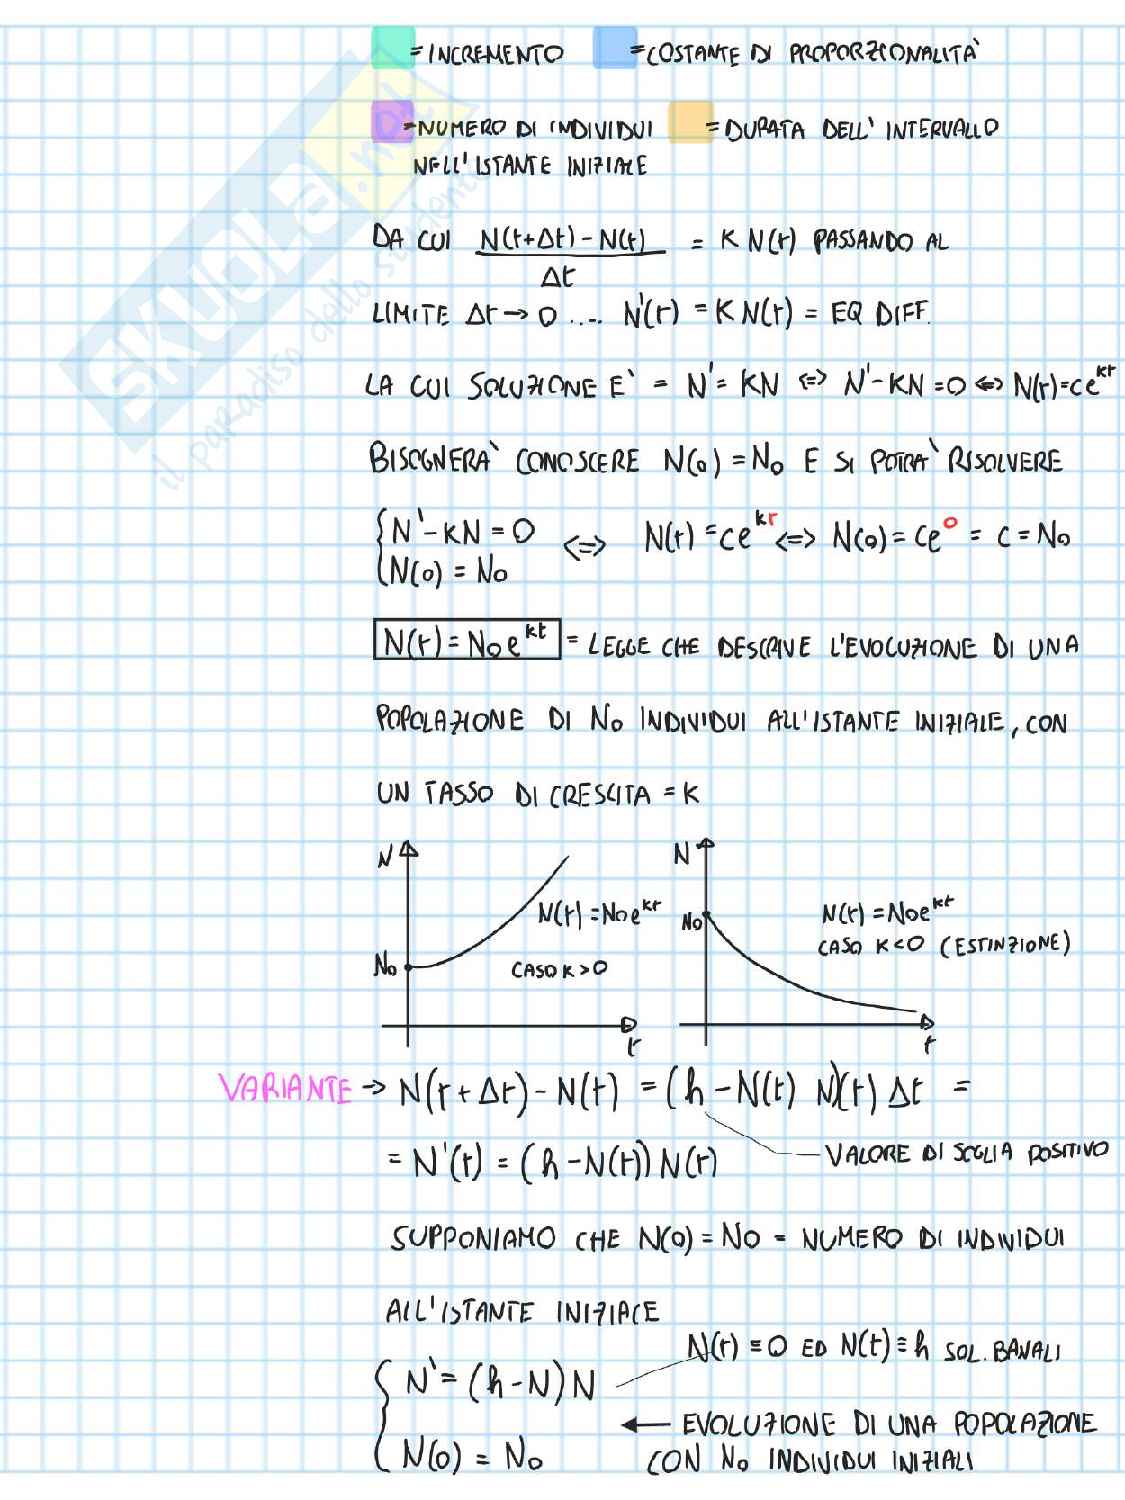 = INCREMENTO = COSTANTE DI PROPORZIONALITÀ
= NUMERO DI INDIVIDUI = DURATA DELL' INTERVALLO
NELL' ISTANTE INIZIALE
DA CUI N(t+Δt) - N(t) / Δt = K N(t) PASSANDO AL
LIMITE Δt → 0 .... N'(t) = K N(t) = EQ DIFF.
LA CUI SOLUZIONE E' = N' = KN ⇔ N' - KN = 0 ⇔ N(t) = ce^kt
BISOGNERA' CONOSCERE N(0) = N₀ E SI POTRA' RISOLVERE
{ N' - KN = 0 ⇔ N(t) = ce^kt ⇔ N(0) = ce^0 = c = N₀
N(0) = N₀
N(t) = N₀e^kt = LEGGE CHE DESCRIVE L'EVOLUZIONE DI UNA
POPOLAZIONE DI N₀ INDIVIDUI ALL'ISTANTE INIZIALE, CON
UN TASSO DI CRESCITA = K
N
N₀
N(t) = N₀e^kt
CASO K > 0
t
N
N₀
N(t) = N₀e^kt
CASO K < 0 (ESTINZIONE)
t
VARIANTE → N(t + Δt) - N(t) = (h - N(t) N)(t) Δt =
= N'(t) = (h - N(t)) N(t)
VALORE DI SOGLIA POSITIVO
SUPPONIAMO CHE N(0) = N₀ = NUMERO DI INDIVIDUI
ALL'ISTANTE INIZIALE
N(t) ≡ 0 ED N(t) ≡ h SOL. BANALI
{ N' = (h - N) N
← EVOLUZIONE DI UNA POPOLAZIONE
N(0) = N₀
CON N₀ INDIVIDUI INIZIALI
SKUOLA.net
il paradiso dello studente